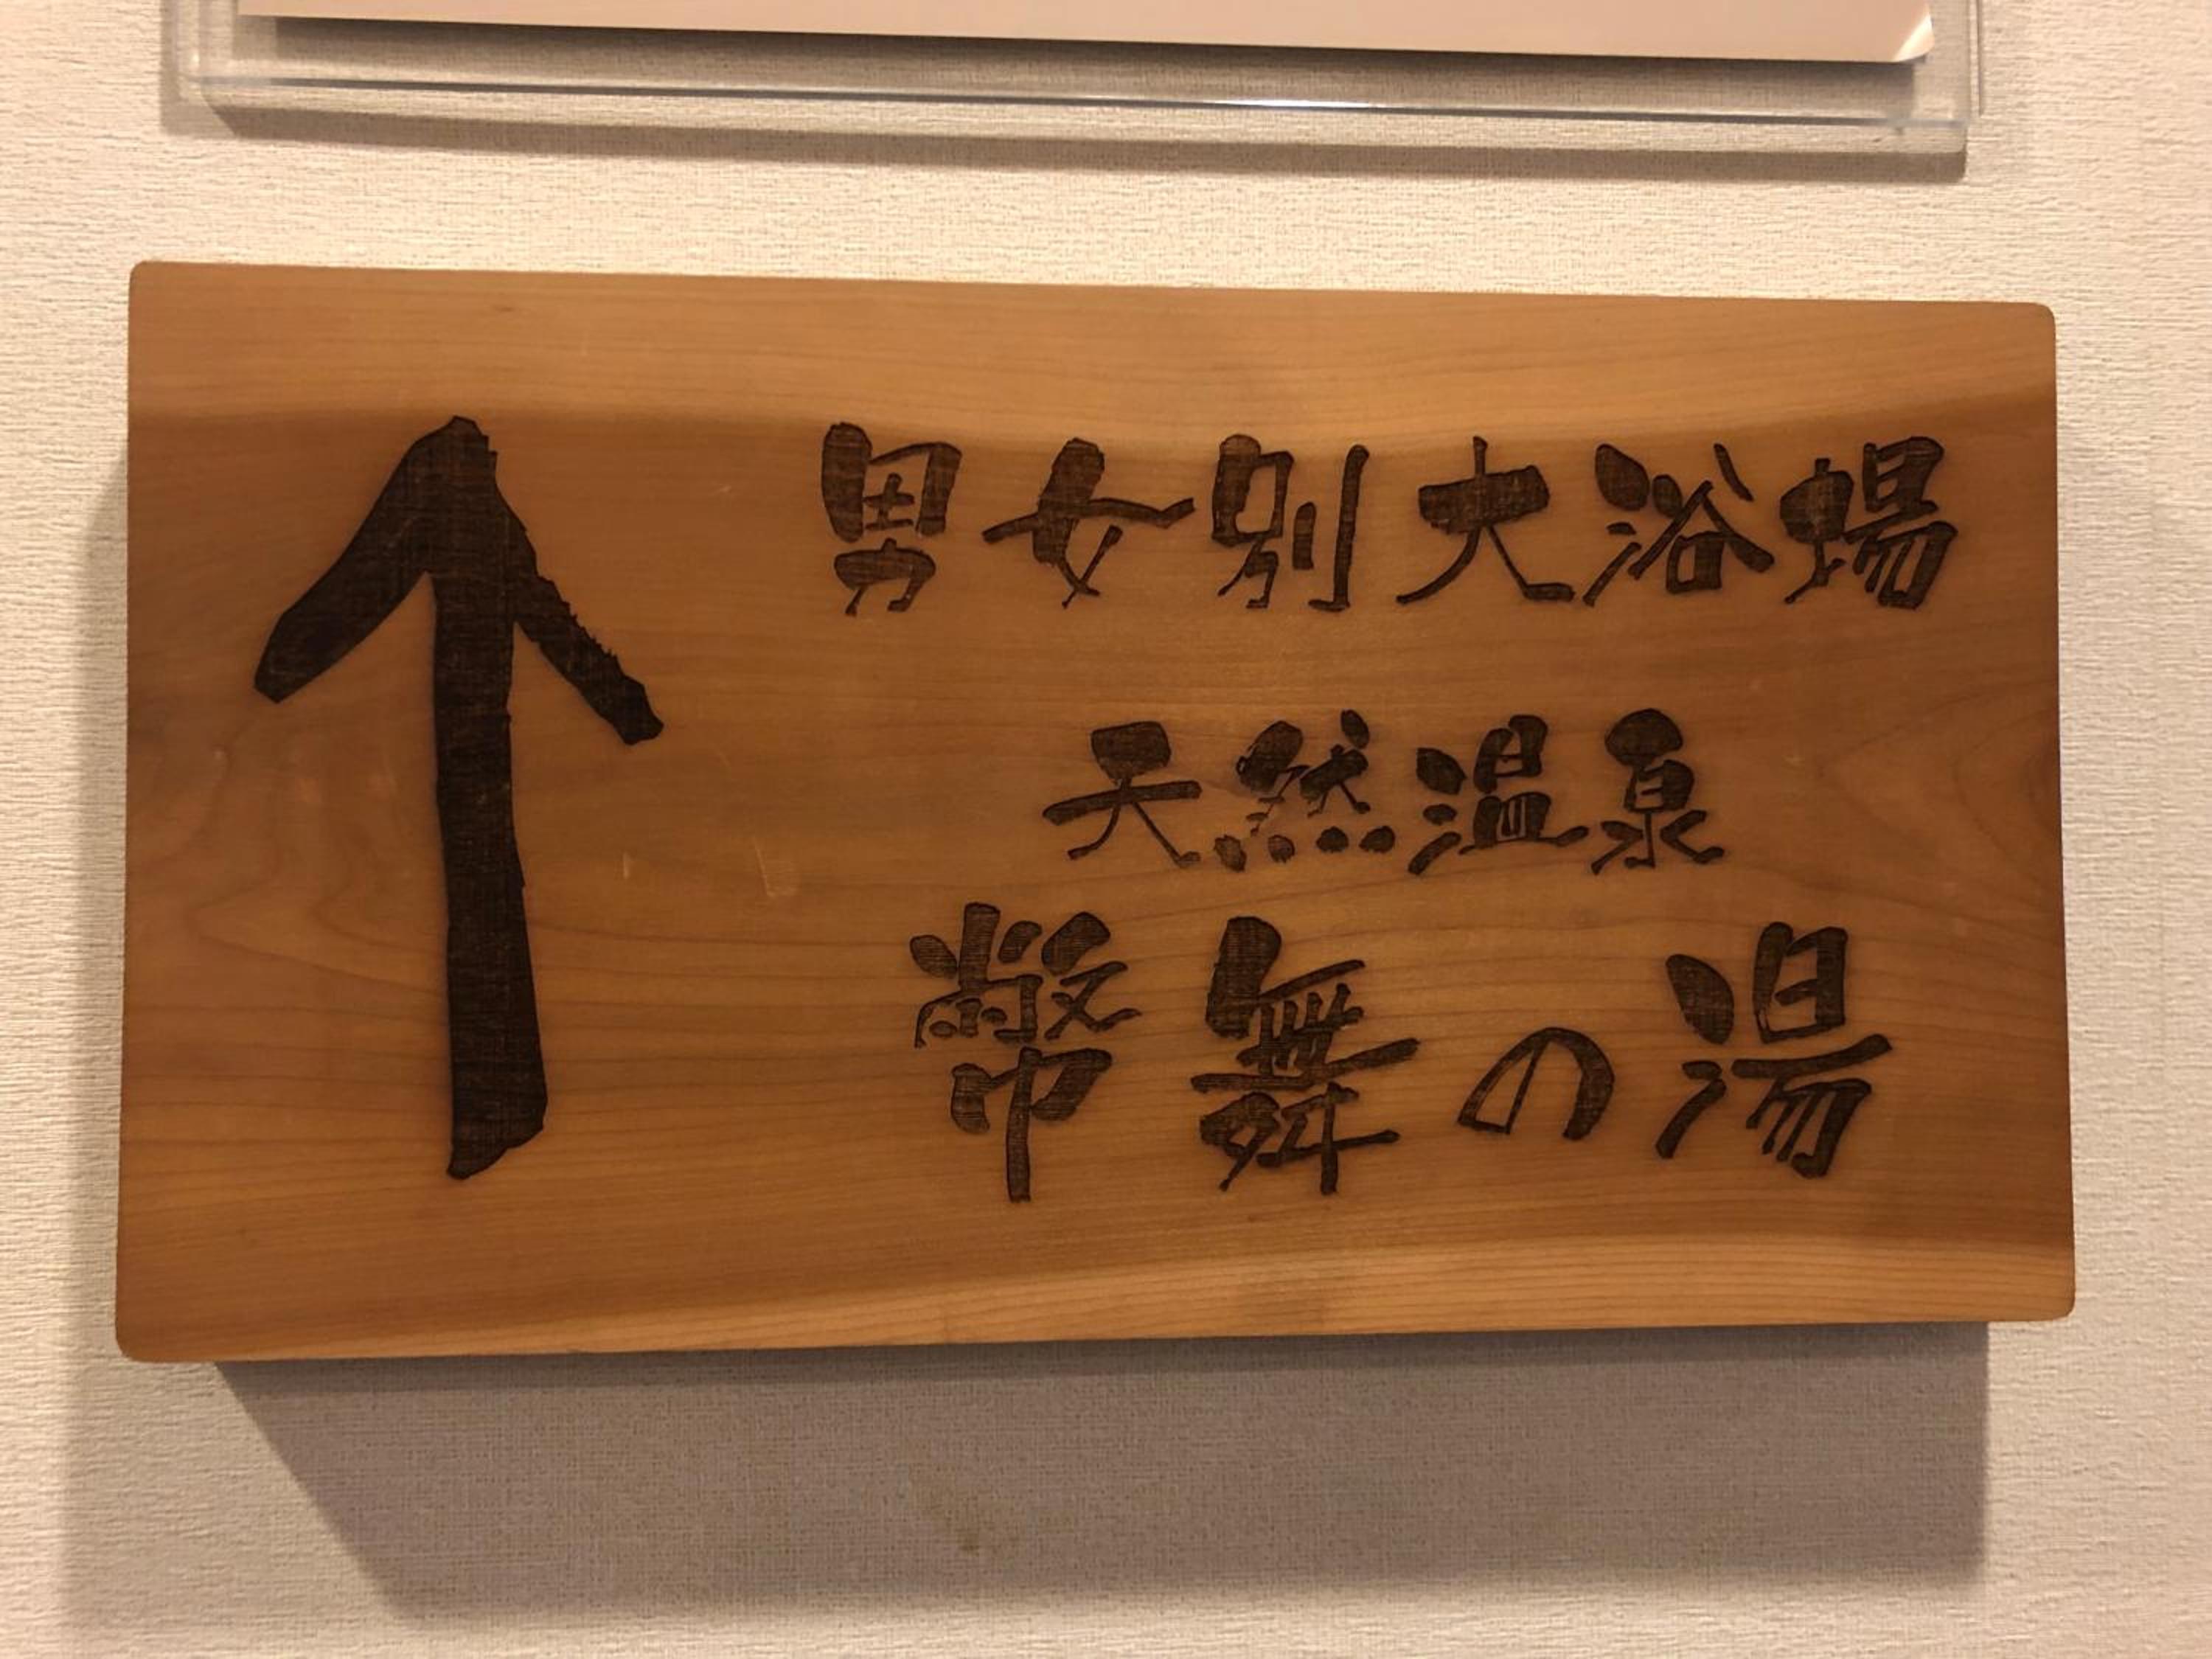 ↑
男女別大浴場
天然温泉
幣舞の湯